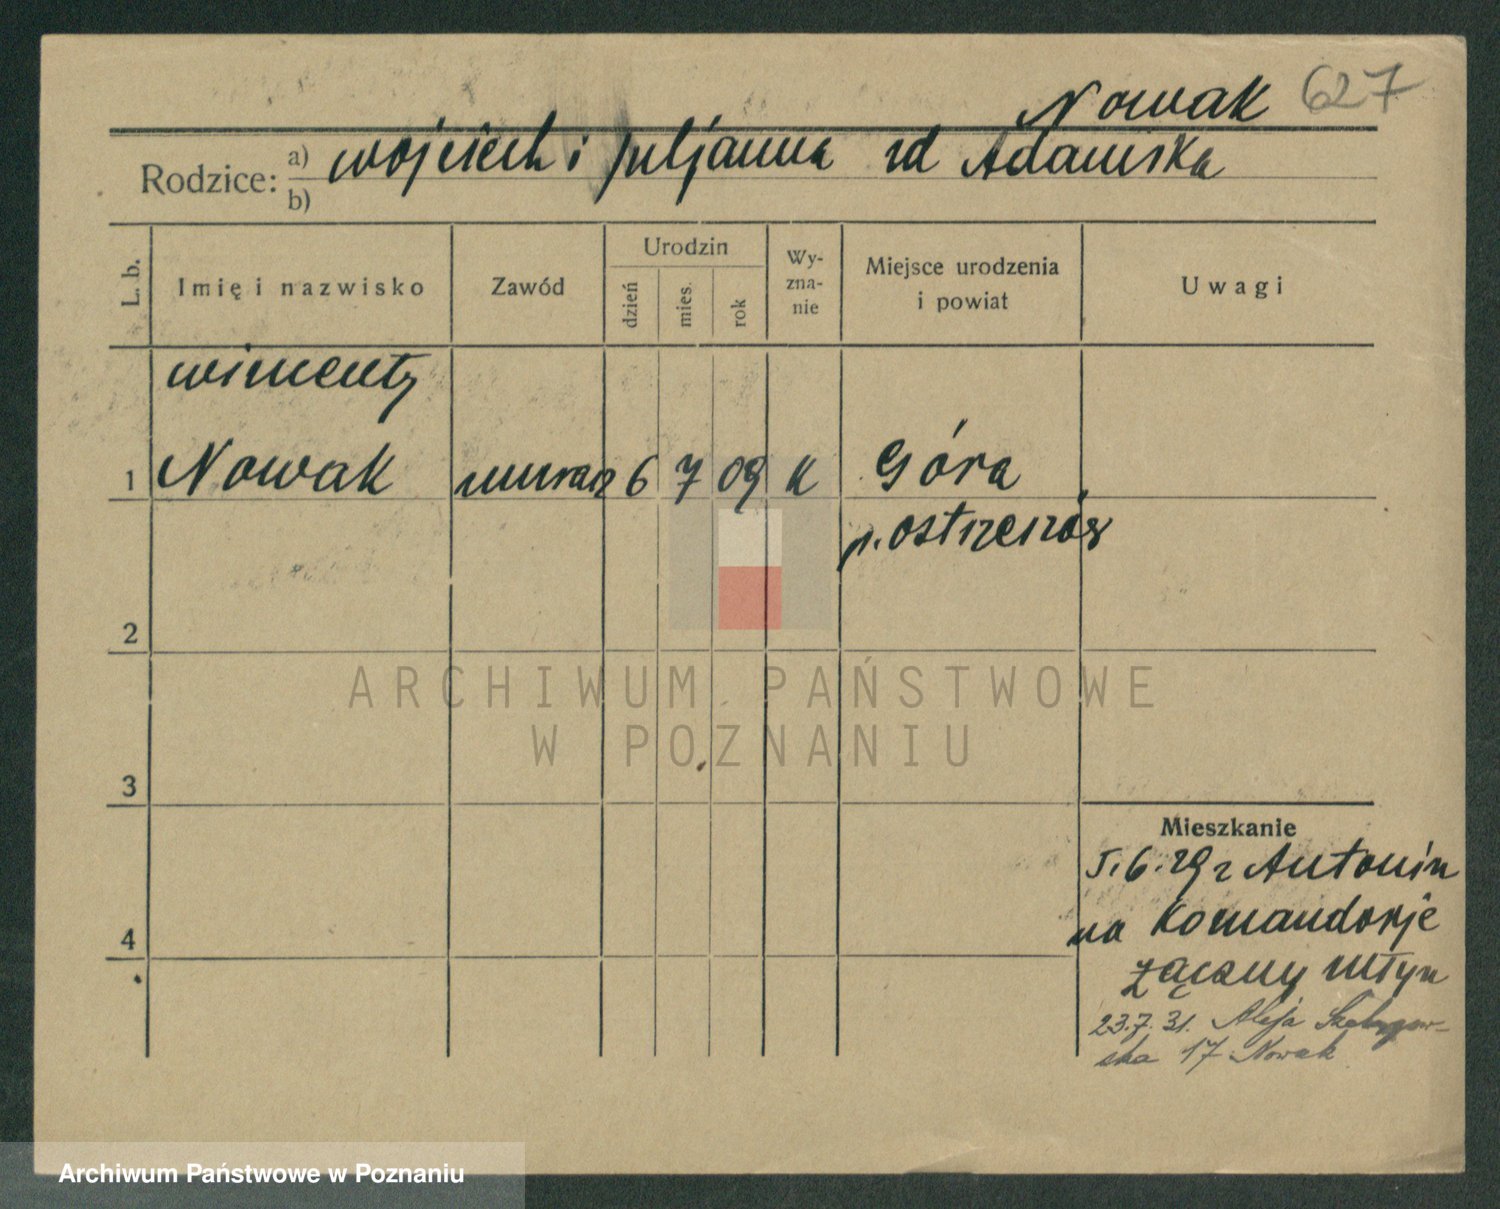 Nowak 627
Rodzice: a) wojciech i Juljanna zd Adamska
b)
L. b. Imię i nazwisko Zawód Urodzin dzień mies. rok Wy-zna-nie Miejsce urodzenia i powiat Uwagi
wincenty
1 Nowak murarz 6 7 09 K Góra
p. ostrzeszów
2
ARCHIWUM PAŃSTWOWE
W POZNANIU
3
Mieszkanie
5.6.29 r Antonin
4 na Komandorje
Łączny młyn
23.7.31. Aleja
ska 17 Nowak
Archiwum Państwowe w Poznaniu